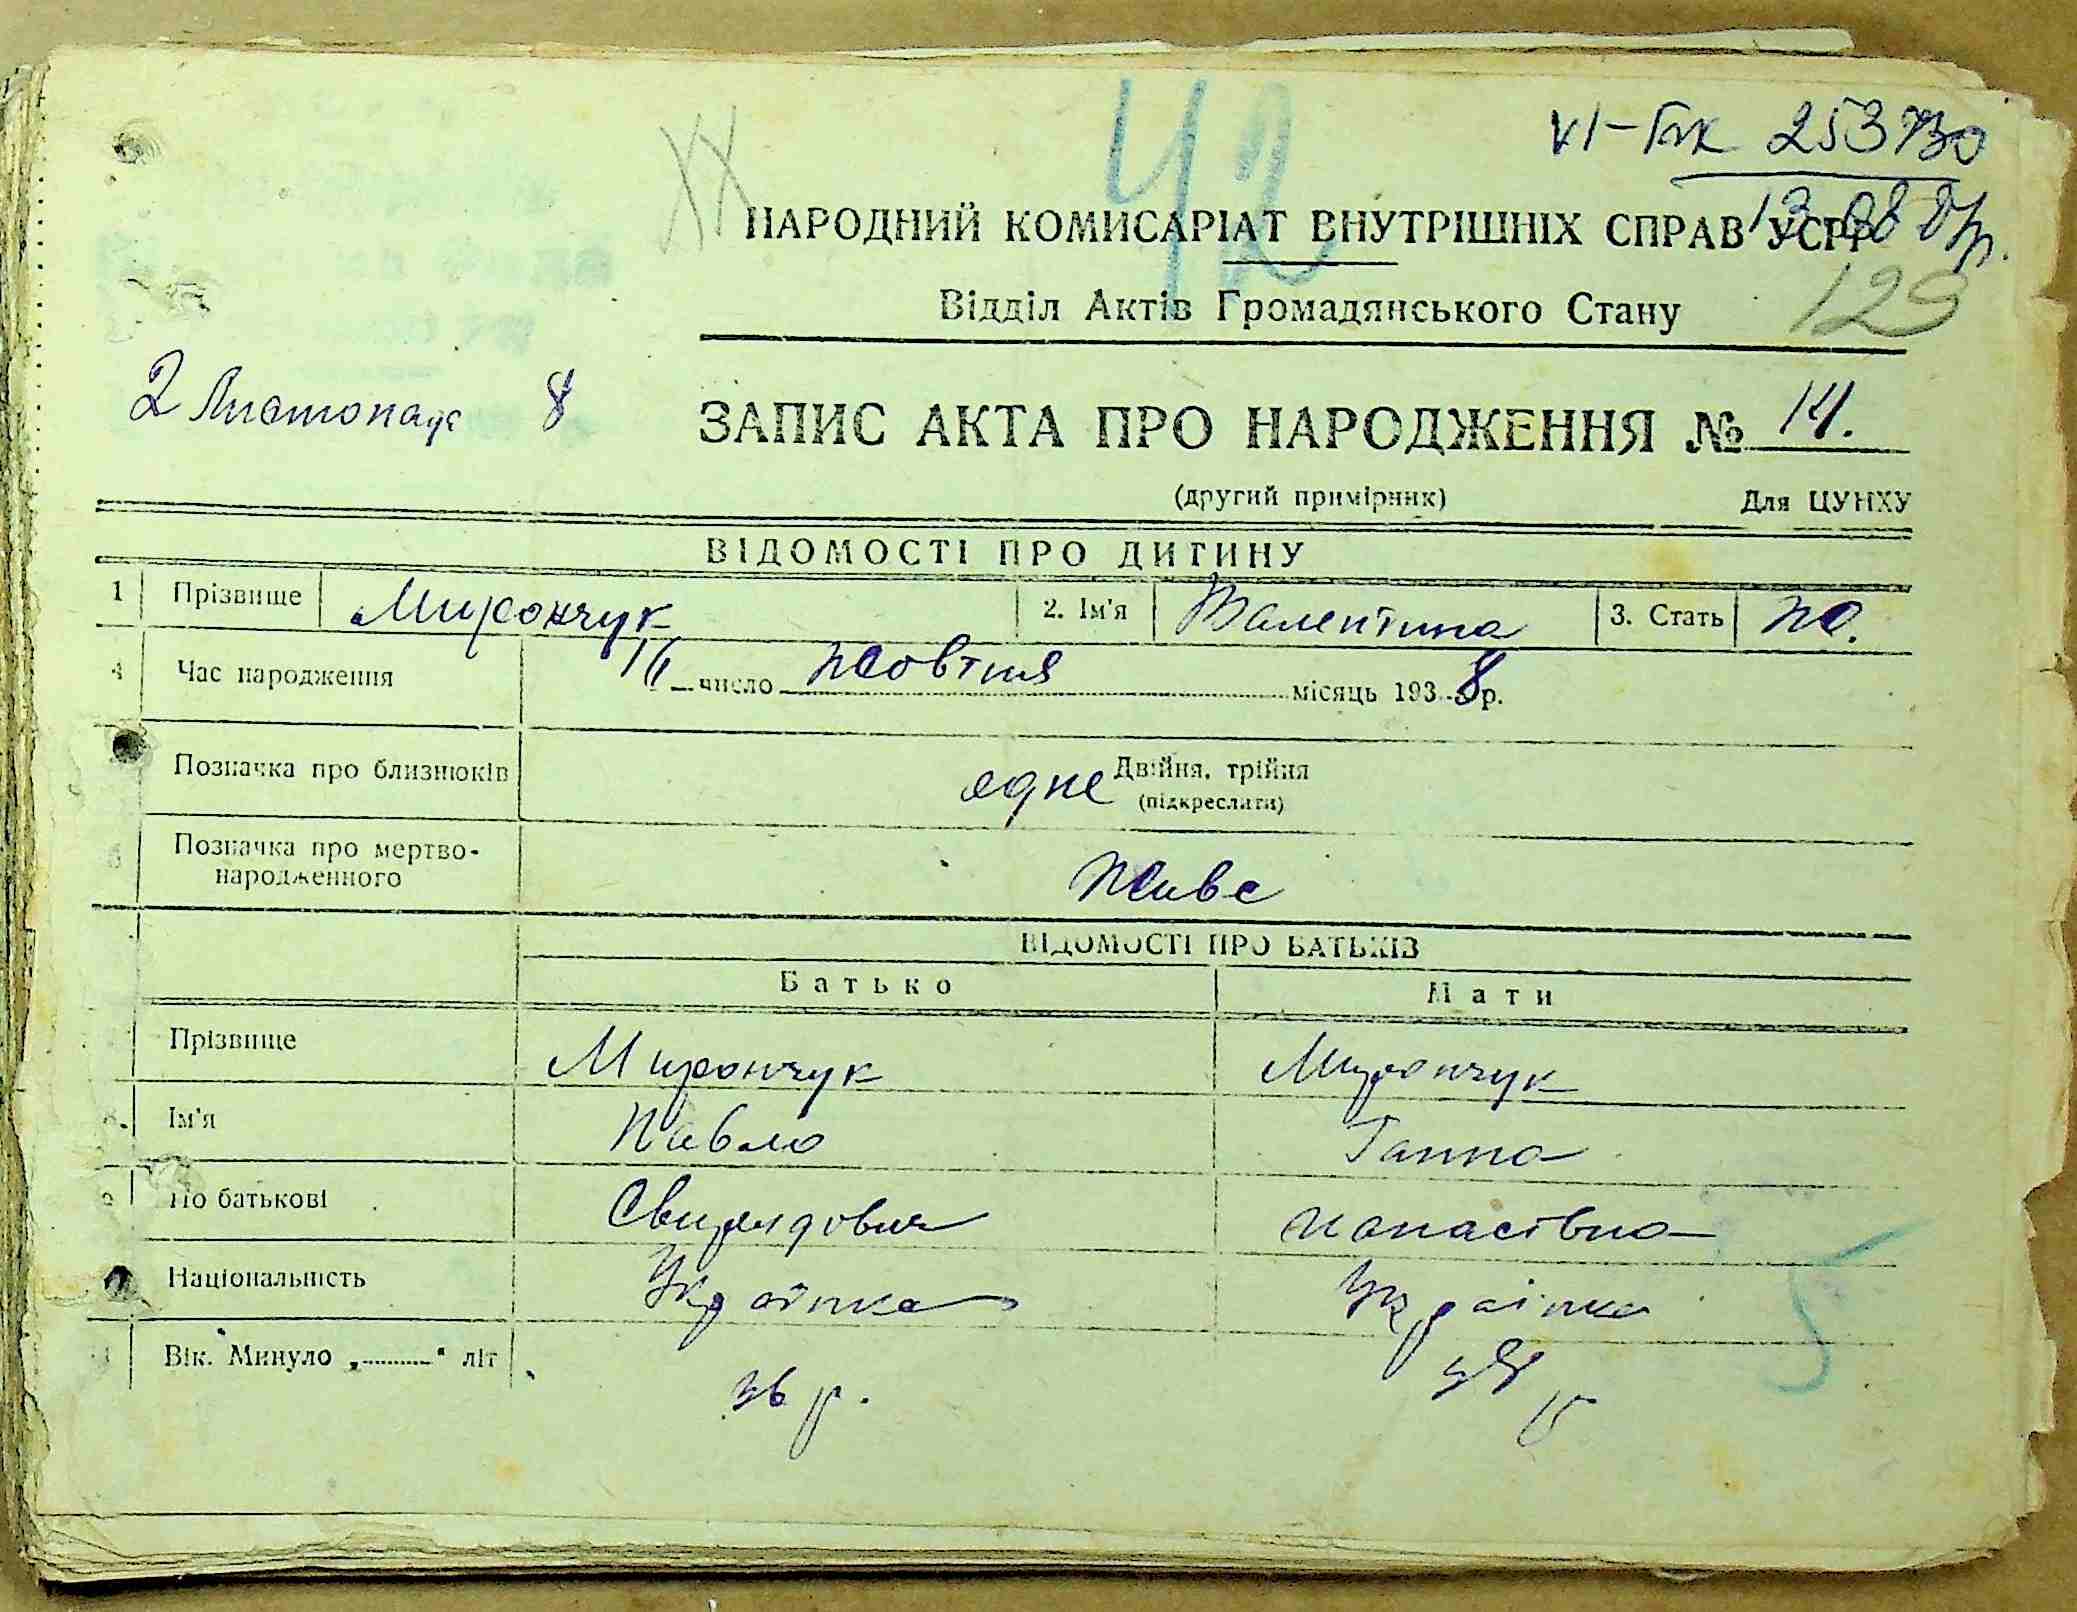 42
VI-БК 253730
13.08 87р.
НАРОДНИЙ КОМИСАРІАТ ВНУТРІШНІХ СПРАВ УСРР
Відділ Актів Громадянського Стану
129
2 Листопада 8
ЗАПИС АКТА ПРО НАРОДЖЕННЯ № 14.
(другий примірник) Для ЦУНХУ
ВІДОМОСТІ ПРО ДИТИНУ
1 Прізвище Мирончук 2. Ім'я Валентина 3. Стать жо.
4 Час народження 16 число жовтня місяць 1938 р.
Позначка про близнюків одне Двійня, трійня
(підкреслити)
Позначка про мертво-
народженного живе
ВІДОМОСТІ ПРО БАТЬКІВ
Батько Мати
Прізвище Мирончук Мирончук
Ім'я Павло Ганна
По батькові Свиридович Панасівна
Національність Українка Українка
5
Вік. Минуло „ “ літ 36 р.